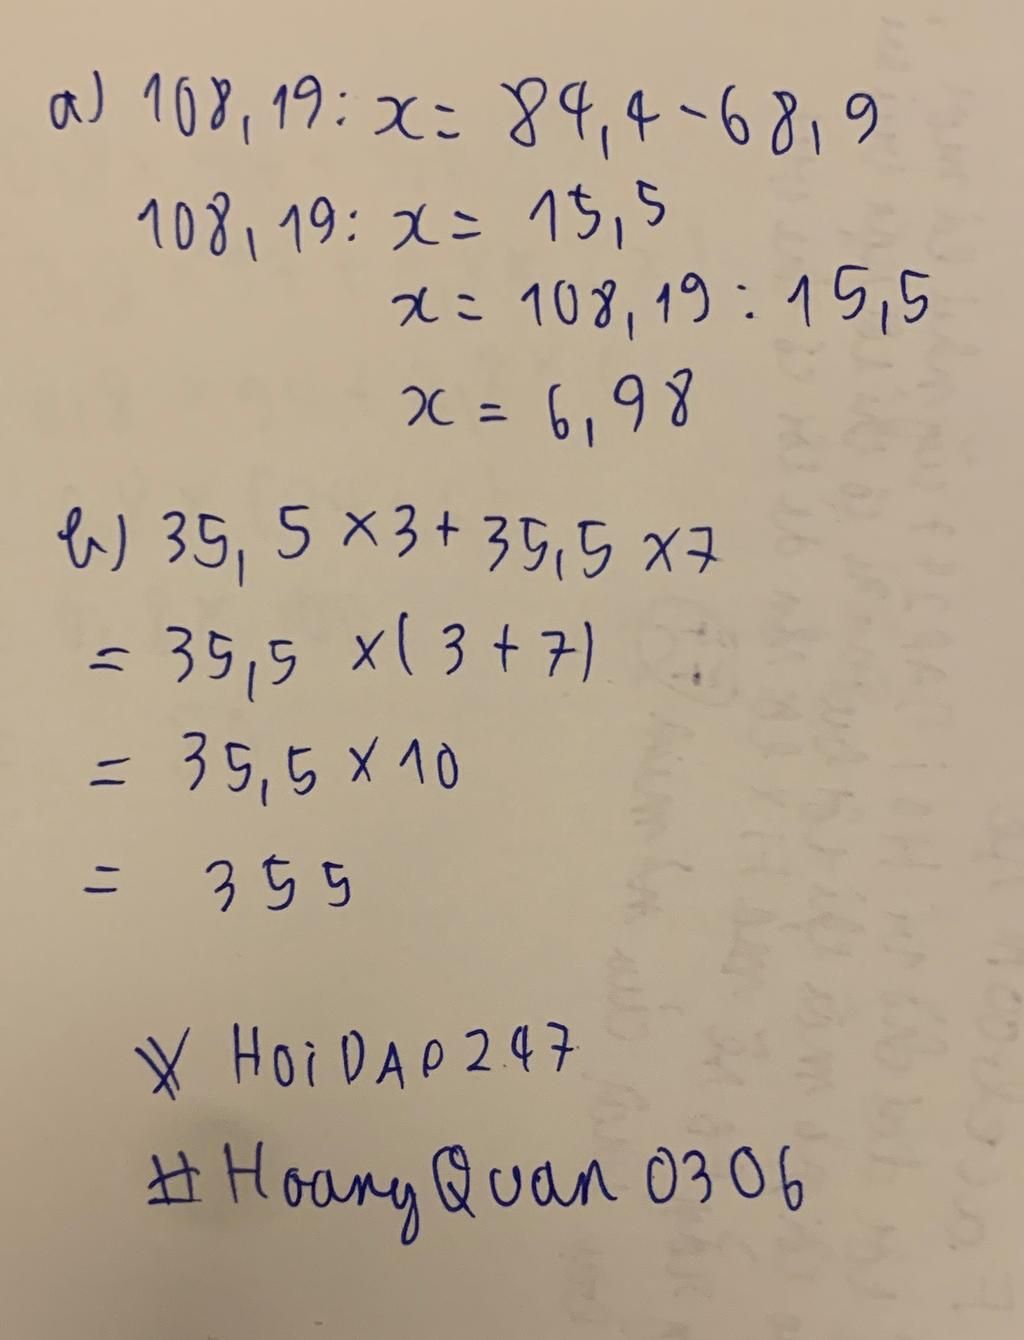 a) 108,19: x = 84,4 - 68,9
108,19: x = 15,5
x = 108,19 : 15,5
x = 6,98
b) 35,5 x 3 + 35,5 x 7
= 35,5 x ( 3 + 7)
= 35,5 x 10
= 355
HoiDAP247
#HoangQuan0306